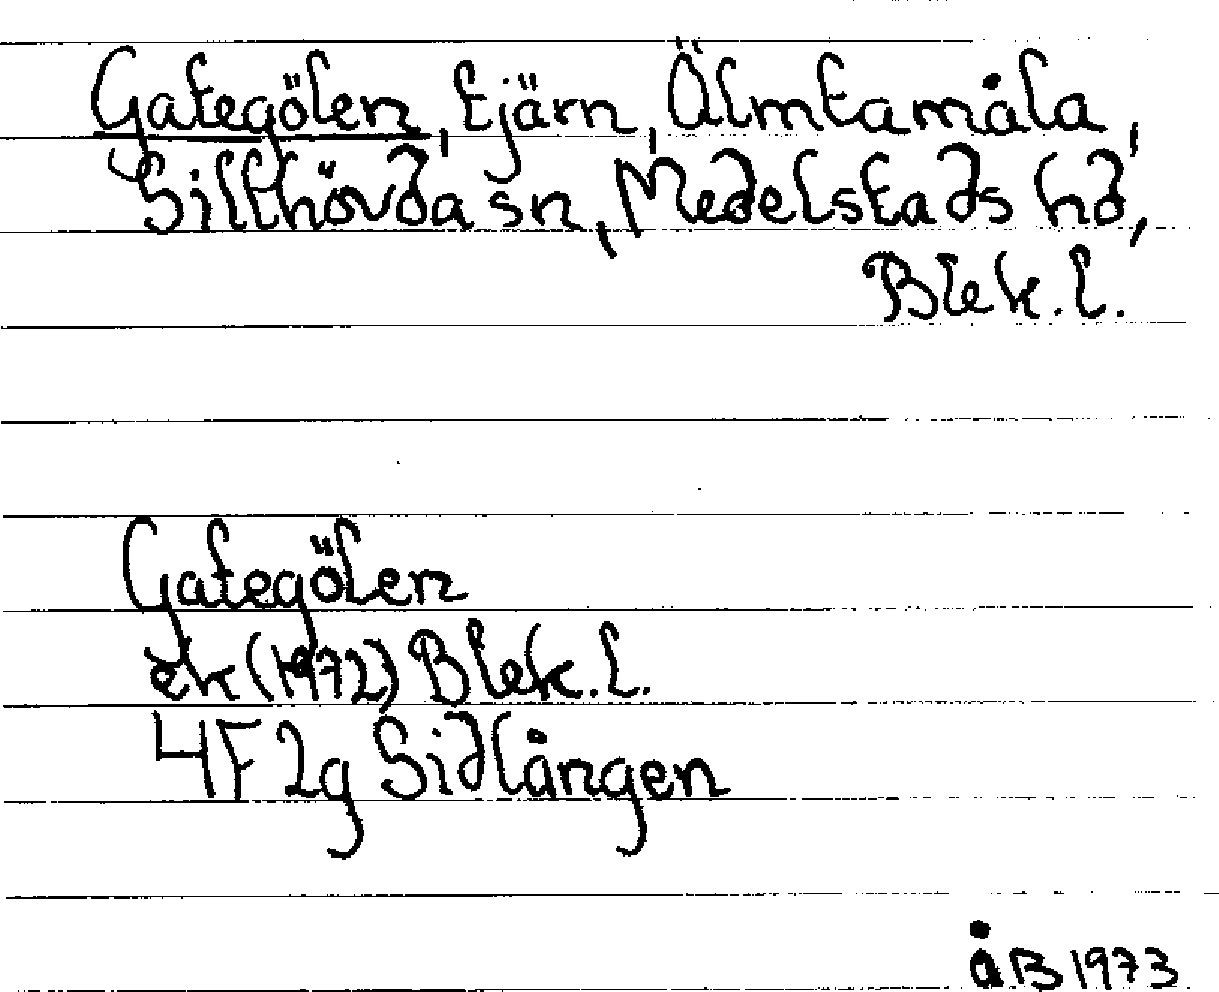 Gategölen, tjärn, Älmtamåla,
Sillhövda sn, Medelstads hd,
Blek. l.
Gategölen
ek (1972) Blek. l.
4F 2g Sidlången
åB 1973